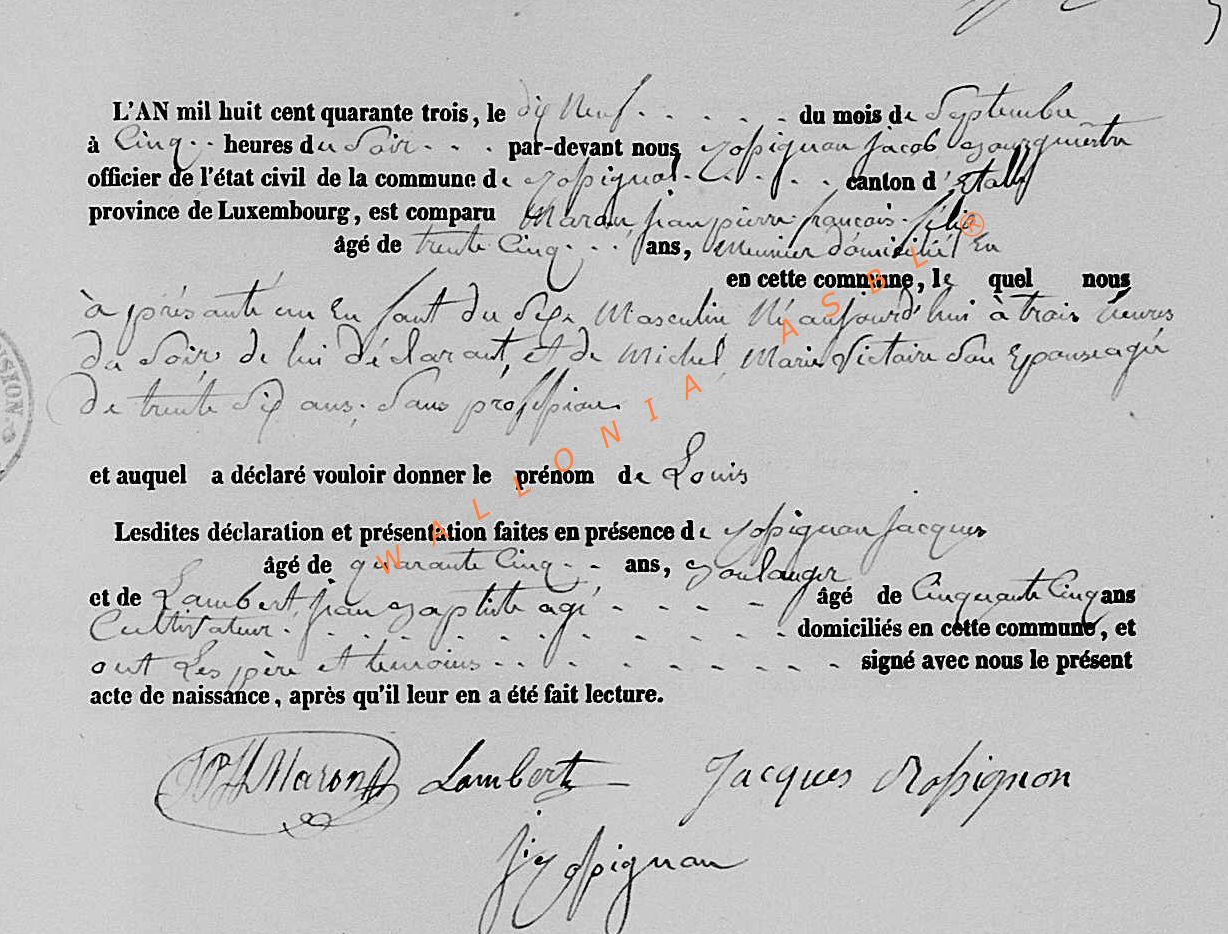 L'AN mil huit cent quarante trois, le dix Neuf - - - - - du mois de Septembre
à Cinq - - heures du Soir - - - par-devant nous Rossignon Jacob Bourguemtre
officier de l'état civil de la commune de Rossignol - - - - - canton d'Etalle
province de Luxembourg, est comparu Maron jean pierre françois félix
âgé de trente Cinq - - - ans, Meunier domicilié En
en cette commune, le quel nous
à présanté un En fant du Sexe Masculin Né aujourd'hui à trois heures
du Soir, de lui déclarant, et de Michel, Marie Victoire Son Epouse agée
de trente Six ans. Sans profession
et auquel a déclaré vouloir donner le prénom de Louis
Lesdites déclaration et présentation faites en présence de Rossignon Jacques
âgé de quarante Cinq - - ans, Boulanger
et de Lambert jean Baptiste agé - - - - - âgé de Cinquante Cinq ans
Cultivateur - - - - - - - - - - - domiciliés en cette commune, et
ont Les père et temoins - - - - - - - - signé avec nous le présent
acte de naissance, après qu'il leur en a été fait lecture.
Maron Lambert Jacques Rossignon
J Rossignon
SION.
WALLONIA ASBL ®